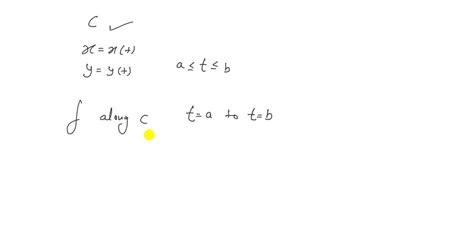 C ✓
x = x(t)
y = y(t) a ≤ t ≤ b
f along C t=a to t=b